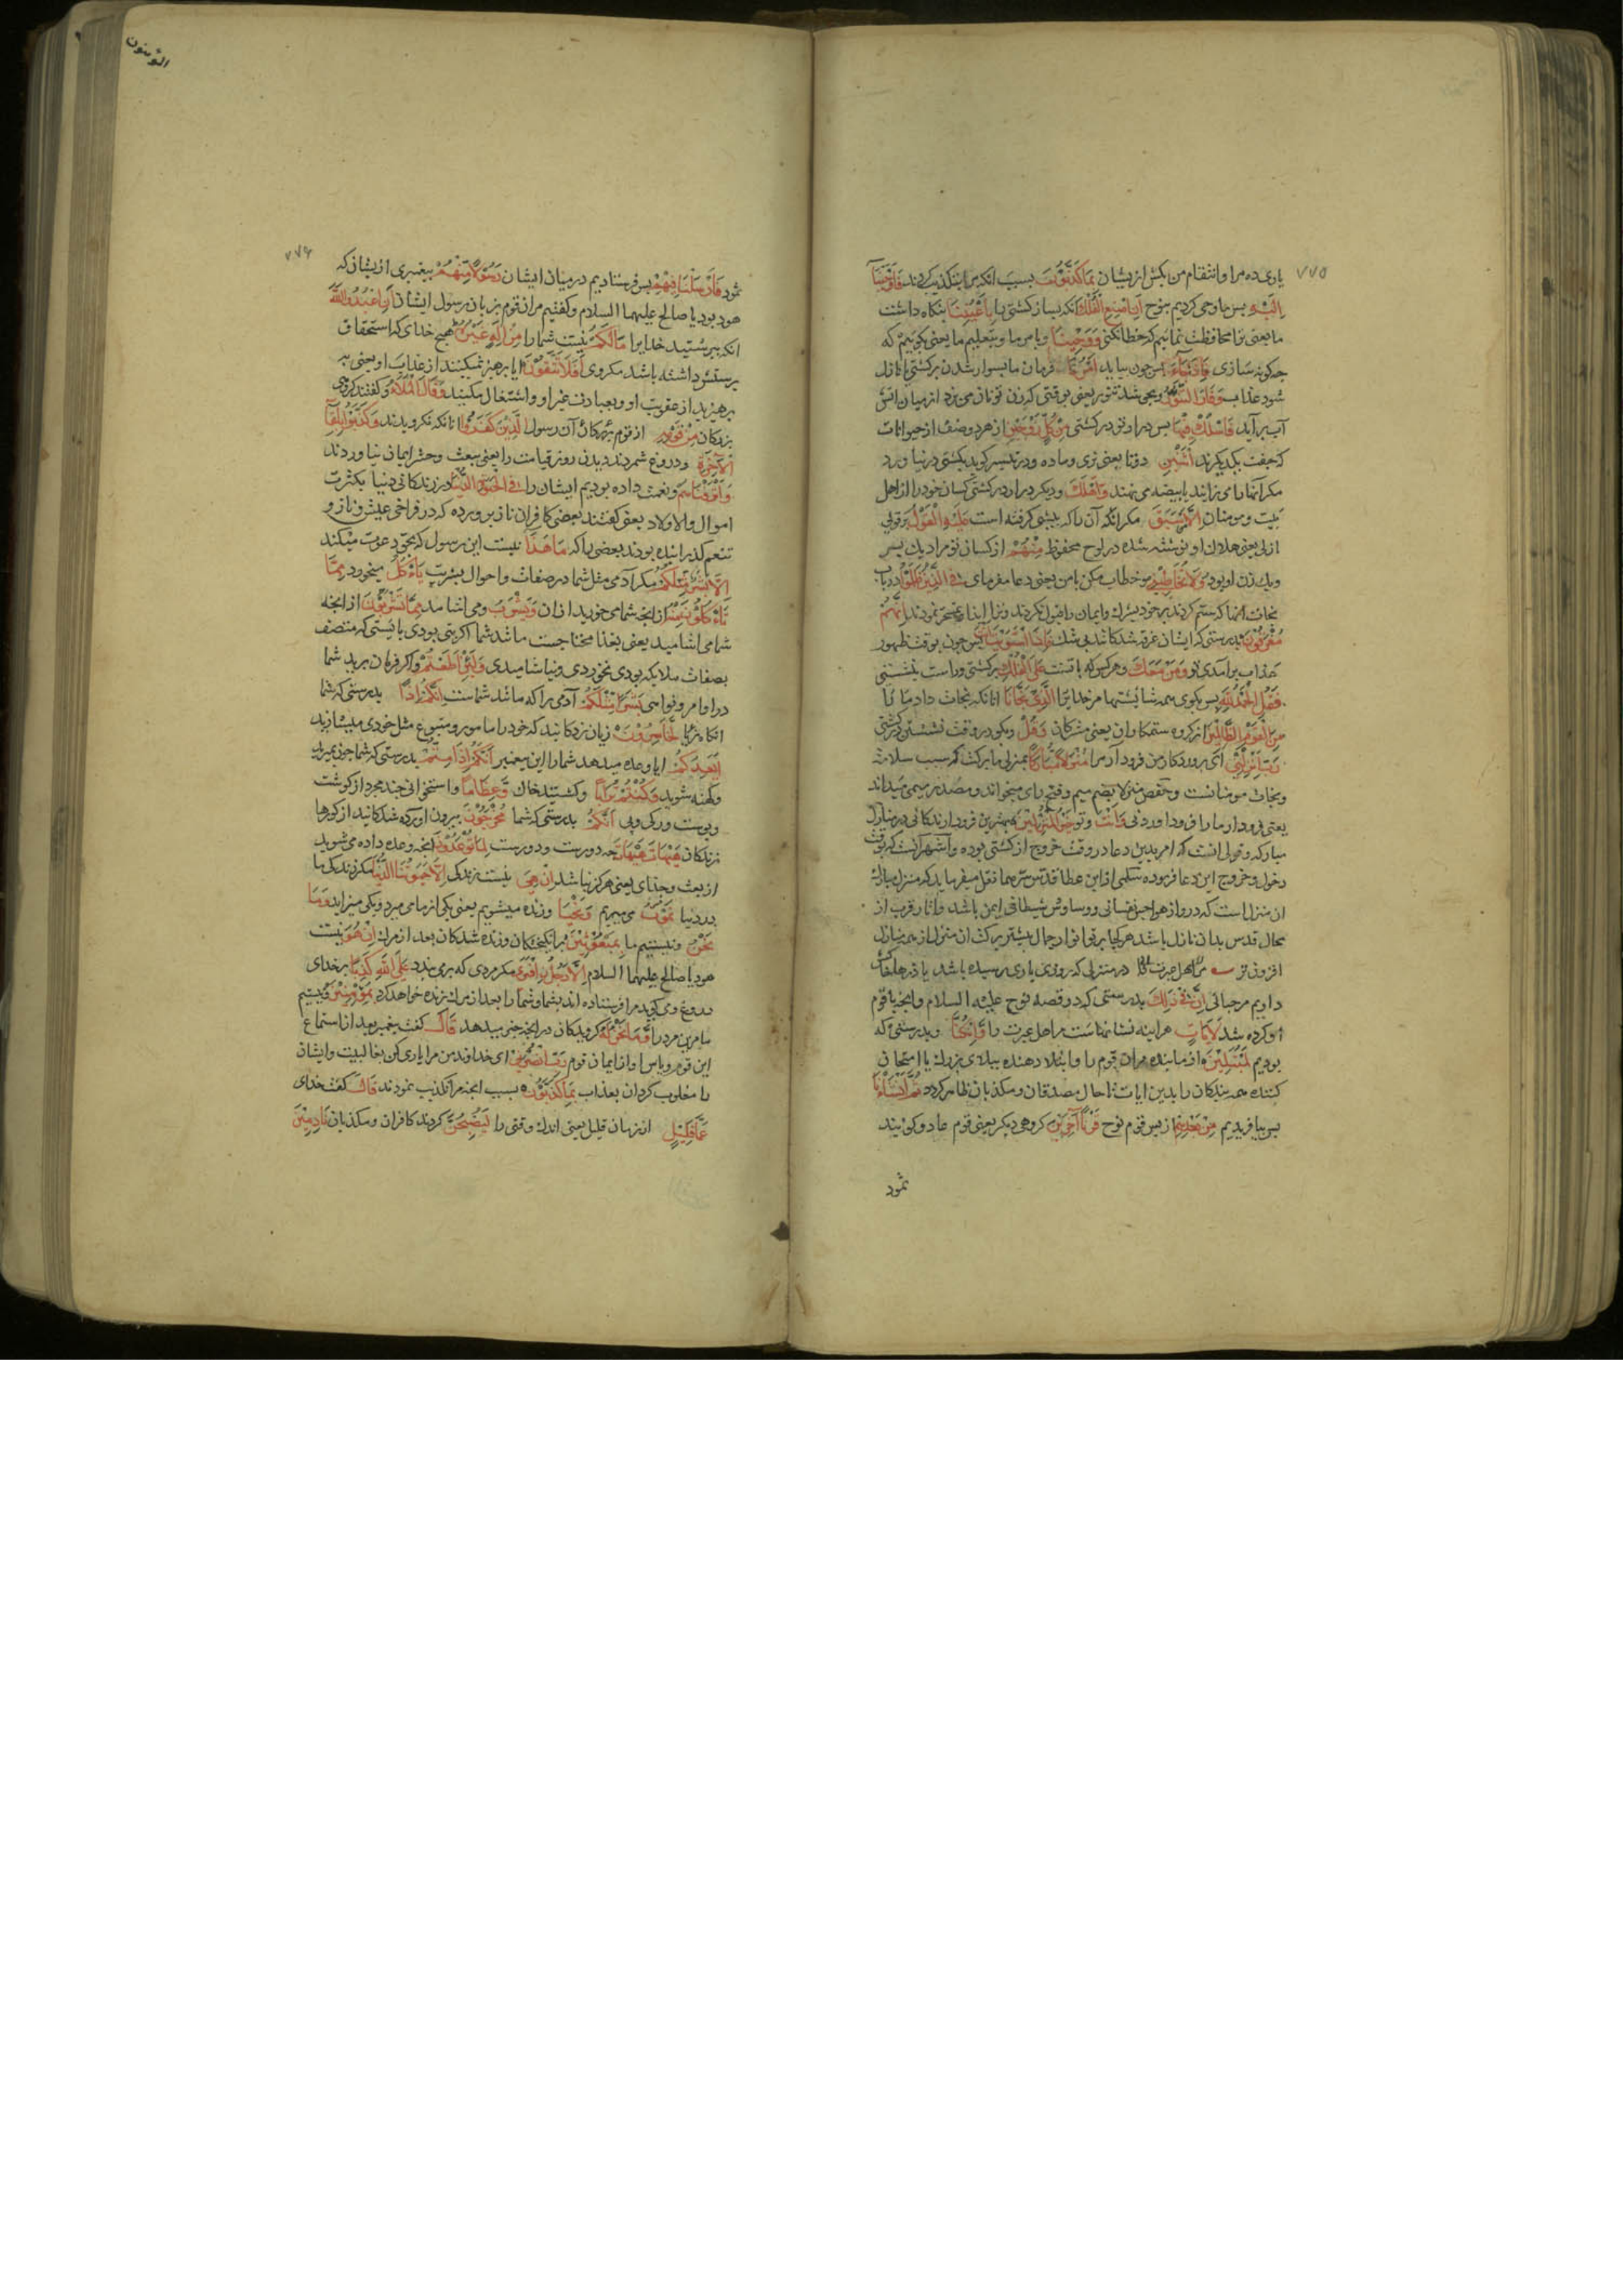 ۷۷۵
یاری ده مرا و انتقام من بکش از یشان بِمَا كَذَّبُونِ بسبب انکه مرا بتکذیب کردند فَاَوْحَیْنَآ
اِلَیْهِ پس ما وحی کردیم بنوح اَنِ اصْنَعِ الْفُلْكَ انکه بساز کشتی را بِاَعْیُنِنَا بنکاه داشت
ما یعنی ترا محافظت نمائیم که خطا نکنی وَ وَحْیِنَا و بامر ما و بتعلیم ما یعنی بکوییم که
چکونه سازی فَاِذَا جَآءَ پس چون بیاید اَمْرُنَا فرمان ما بسوار شدن بر کشتی یا نازل
شود عذاب وَفَارَ التَّنُّورُ و بجوشد تنور یعنی بوقتی که زن تو نان می پزد از میان اتش
آب برآید فَاسْلُكْ فِیهَا پس در اور در کشتی مِنْ كُلٍّ زَوْجَیْنِ از هر دو صنف از حیوانات
که جفت یکدیکرند اثْنَیْنِ دوتا یعنی نری و ماده و در تیسیر کوید بکشتی در نیاورد
مکر آنها را می زایند یا بیضه می نهند وَاَهْلَكَ و دیکر در ار در کشتی کسان خود را از اهل
بیت و مومنان اِلَّا مَنْ سَبَقَ مکر انکه آن را که پیشی کرفته است عَلَیْهِ الْقَوْلُ بر وی قول
ازلی یعنی هلاك او نوشته شده در لوح محفوظ مِنْهُمْ از کسان تو مراد یك پسر
و یك زن او بود وَلَا تُخَاطِبْنِی و خطاب مکن با من یعنی دعا مفرمای فِی الَّذِینَ ظَلَمُوا در باب
نجات انها که ستم کردند بر خود بشرك و ایمان را قبول نکردند و ترا ایذا و تمسخر نمودند اِنَّهُمْ
مُغْرَقُونَ بدرستی که ایشان غرقه شدکانند بی شك فَاِذَا اسْتَوَیْتَ اَنْتَ پس چون بوقت ظهور
عذاب برآمدی تو وَمَنْ مَعَكَ و هرکس که با تست عَلَی الْفُلْكِ بر کشتی و راست بنشستی
فَقُلِ الْحَمْدُ لِلّٰهِ پس بکوی همه ستایشها مر خدایرا الَّذِی نَجَّانَا انانکه نجات داد ما را
مِنَ الْقَوْمِ الظَّالِمِینَ از کروه ستمکاران یعنی مشرکان وَقُلْ و بکو در وقت نشستن در کشتی
رَبِّ اَنْزِلْنِی ای پروردکار من فرود آر مرا مُنْزَلًا مُبَارَكًا بمنزلی با برکت که سبب سلامت
و نجات مومنانست و حفص منزلا بضم میم و فتح زای میخواند و مصدر میمی میداند
یعنی فرود آر ما را فرود اوردنی وَاَنْتَ و تو خَیْرُ الْمُنْزِلِینَ بهترین فرود ارندکانی در منازل
مبارکه و قولی انست که امر بدین دعا در وقت خروج از کشتی بوده و اشهر آنست که بوقت
دخول و خروج این دعا فرموده سلمی از ابن عطا قدس سرهما نقل میفرماید که منزل مبارك
ان منزلست که درو از هواجس نفسانی و وساوس شیطانی ایمن باشد و اثار قرب از
محال قدس بدان نازل باشد هرکجا پرتو انوار جمال بیشتر برکت ان منزل از همه منازل
افزون تر
داریم مرحبائی اِنَّ فِی ذٰلِكَ بدرستی که در قصه نوح علیه السلام و انچه با قوم
او کرده شد لَاٰیَاتٍ هراینه نشانهاست مر اهل عبرت را وَاِنْ كُنَّا و بدرستی که
بودیم لَمُبْتَلِینَ ازماینده مران قوم را و ابتلا دهنده ببلای بزرك یا امتحان
کننده همه بندکان را بدین ایات تا حال مصدقان و مکذبان ظاهر کردد ثُمَّ اَنْشَاْنَا
پس بیافریدیم مِنْ بَعْدِهِمْ از پس قوم نوح قَرْنًا اٰخَرِینَ کروهی دیکر یعنی قوم عاد و کویند
ثمود
المؤمنون
۷۷۶
ثمود فَاَرْسَلْنَا فِیهِمْ پس فرستادیم در میان ایشان رَسُولًا مِنْهُمْ پیغمبری از یشان که
هود بود یا صالح علیهما السلام و کفتیم مران قوم بزبان رسول ایشان اَنِ اعْبُدُوا اللّٰهَ
انکه بپرستید خدایرا مَا لَكُمْ نیست شما را مِنْ اِلٰهٍ غَیْرُهُ هیچ خدای که استحقاق
پرستش داشته باشد مکر وی اَفَلَا تَتَّقُونَ ایا پرهیز نمیکنید از عذاب او یعنی به
پرهیزید از عقوبت او و بعبادت غیر او اشتغال مکنید وَقَالَ الْمَلَاُ و کفتند کروهی
بزرکان مِنْ قَوْمِهِ از قوم آن رسول الَّذِینَ كَفَرُوا انانکه نکرویدند وَكَذَّبُوا بِلِقَآءِ
الْاٰخِرَةِ و دروغ شمردند دیدن روز قیامت را یعنی ببعث و حشر ایمان نیاوردند
وَاَتْرَفْنَاهُمْ و نعمت داده بودیم ایشان را فِی الْحَیٰوةِ الدُّنْیَا در زندکانی دنیا بکثرت
اموال و اولاد یعنی کفتند بعضی کافران ناز پرورده که در فراخی عیش و ناز و
تنعم کذرانیده بودند بعضی را که مَا هٰذَا نیست این رسول که بحق دعوت میکند
اِلَّا بَشَرٌ مِثْلُكُمْ مکر آدمی مثل شما در صفات و احوال بشریت یَاْكُلُ میخورد مِمَّا
تَاْكُلُونَ مِنْهُ از انچه شما میخورید از ان وَیَشْرَبُ و می اشامد مِمَّا تَشْرَبُونَ از انچه
شما می اشامید یعنی بغذا محتاجست مانند شما اکر نبی بودی بایستی که متصف
بصفات ملایکه بودی نخوردی و نیاشامیدی وَلَئِنْ اَطَعْتُمْ و اکر فرمان برید شما
در اوامر و نواهی بَشَرًا مِثْلَكُمْ آدمی را که مانند شماست اِنَّكُمْ اِذًا بدرستی که شما
انکاه لَخَاسِرُونَ زیان زدکانید که خود را مامور و متبوع مثل خودی میسازید
اَیَعِدُكُمْ ایا وعده میدهد شما را این پیغمبر اَنَّكُمْ اِذَا مِتُّمْ بدرستی که شما چون بمیرید
و کهنه شوید وَكُنْتُمْ تُرَابًا و کشتید خاك وَعِظَامًا و استخوانی چند مجرد از کوشت
و پوست و رك و پی اَنَّكُمْ بدرستی که شما مُخْرَجُونَ بیرون اورده شدکانید از کورها
زندکان هَیْهَاتَ هَیْهَاتَ چه دورست و دورست لِمَا تُوعَدُونَ انچه وعده داده می شوید
از بعث و جزای یعنی هرکز نباشد اِنْ هِیَ نیست زندکی اِلَّا حَیَاتُنَا الدُّنْیَا مکر زندکی ما
در دنیا نَمُوتُ می میریم وَنَحْیَا و زنده میشویم یعنی یکی از ما می میرد و یکی میزاید وَمَا
نَحْنُ و نیستیم ما بِمَبْعُوثِینَ برانکیختکان و زنده شدکان بعد از مرك اِنْ هُوَ نیست
هود یا صالح علیهما السلام اِلَّا رَجُلٌ افْتَرٰی مکر مردی که برمی بندد عَلَی اللّٰهِ كَذِبًا بر خدای
دروغ و می کوید مرا فرستاده اند بشما و شما را بعد از مرك زنده خواهد کرد بِمُؤْمِنِینَ و نیستیم
ما مرین مرد را وَمَا نَحْنُ لَهُ کرویدکان در انچه خبر میدهد قَالَ کفت پیغمبر بعد از استماع
این قوم و یاس او از ایمان قوم رَبِّ انْصُرْنِی ای خداوند من مرا یاری کن بغالبیت و ایشان
را مغلوب کردان بعذاب بِمَا كَذَّبُونِ بسبب انچه مرا تکذیب نمودند قَالَ کفت خدای
عَمَّا قَلِیلٍ از زمان قلیل یعنی اندك وقتی را لَیُصْبِحُنَّ کردند کافران و مکذبان نَادِمِینَ